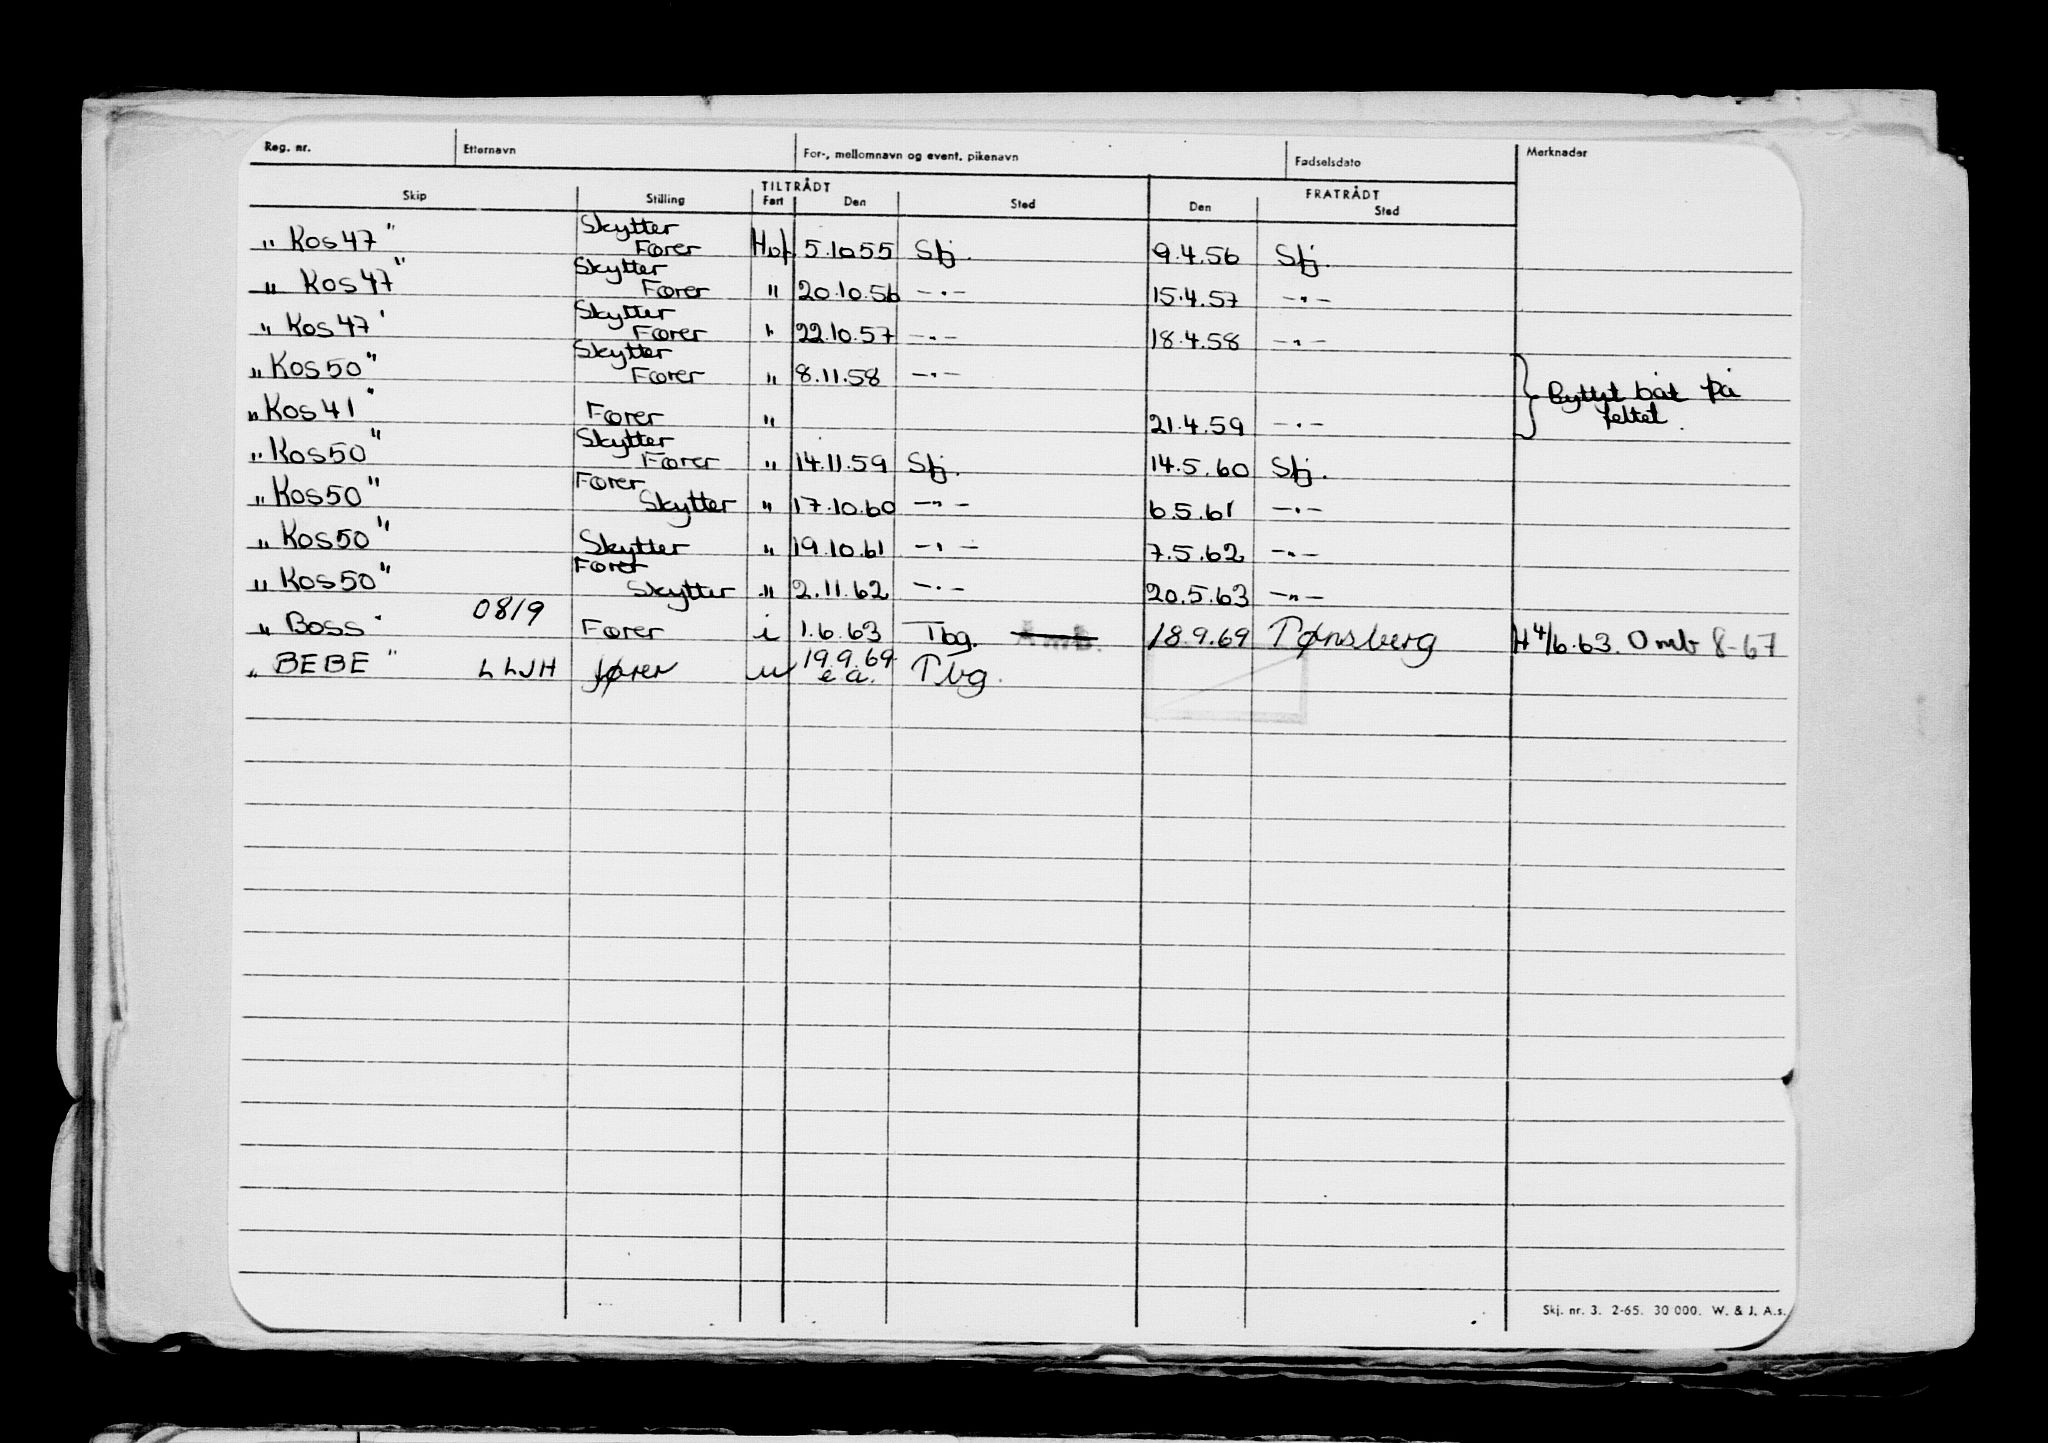 Reg. nr. Etternavn For-, mellomnavn og event. pikenavn Fødselsdato Merknader
TILTRÅDT FRATRÅDT
Skip Stilling Fart Den Sted Den Sted
" Kos 47 " Skytter Fører 5.10.55 Sfj. 9.4.56 Sfj.
" Kos 47 " Skytter Fører " 20.10.56 -"- 15.4.57 -"-
" Kos 47 " Skytter Fører " 22.10.57 -"- 18.4.58 -"-
" Kos 50 " Skytter Fører " 8.11.58 -"-
Byttet båt på
feltet.
" Kos 41 " Fører " 21.4.59 -"-
" Kos 50 " Skytter Fører " 14.11.59 Sfj. 14.5.60 Sfj.
" Kos 50 " Fører Skytter " 17.10.60 -"- 6.5.61 -"-
" Kos 50 " Skytter " 19.10.61 -"- 7.5.62 -"-
" Kos 50 " Fører Skytter " 2.11.62 -"- 20.5.63 -"-
" Boss " 0819 Fører i 1.6.63 Tbg. 18.9.69 Tønsberg H 4/6.63. Omb 8-67
" BEBE " LLJH fører u 19.9.69 e a. Tbg.
Skj. nr. 3. 2-65. 30 000. W. & J. A.s.